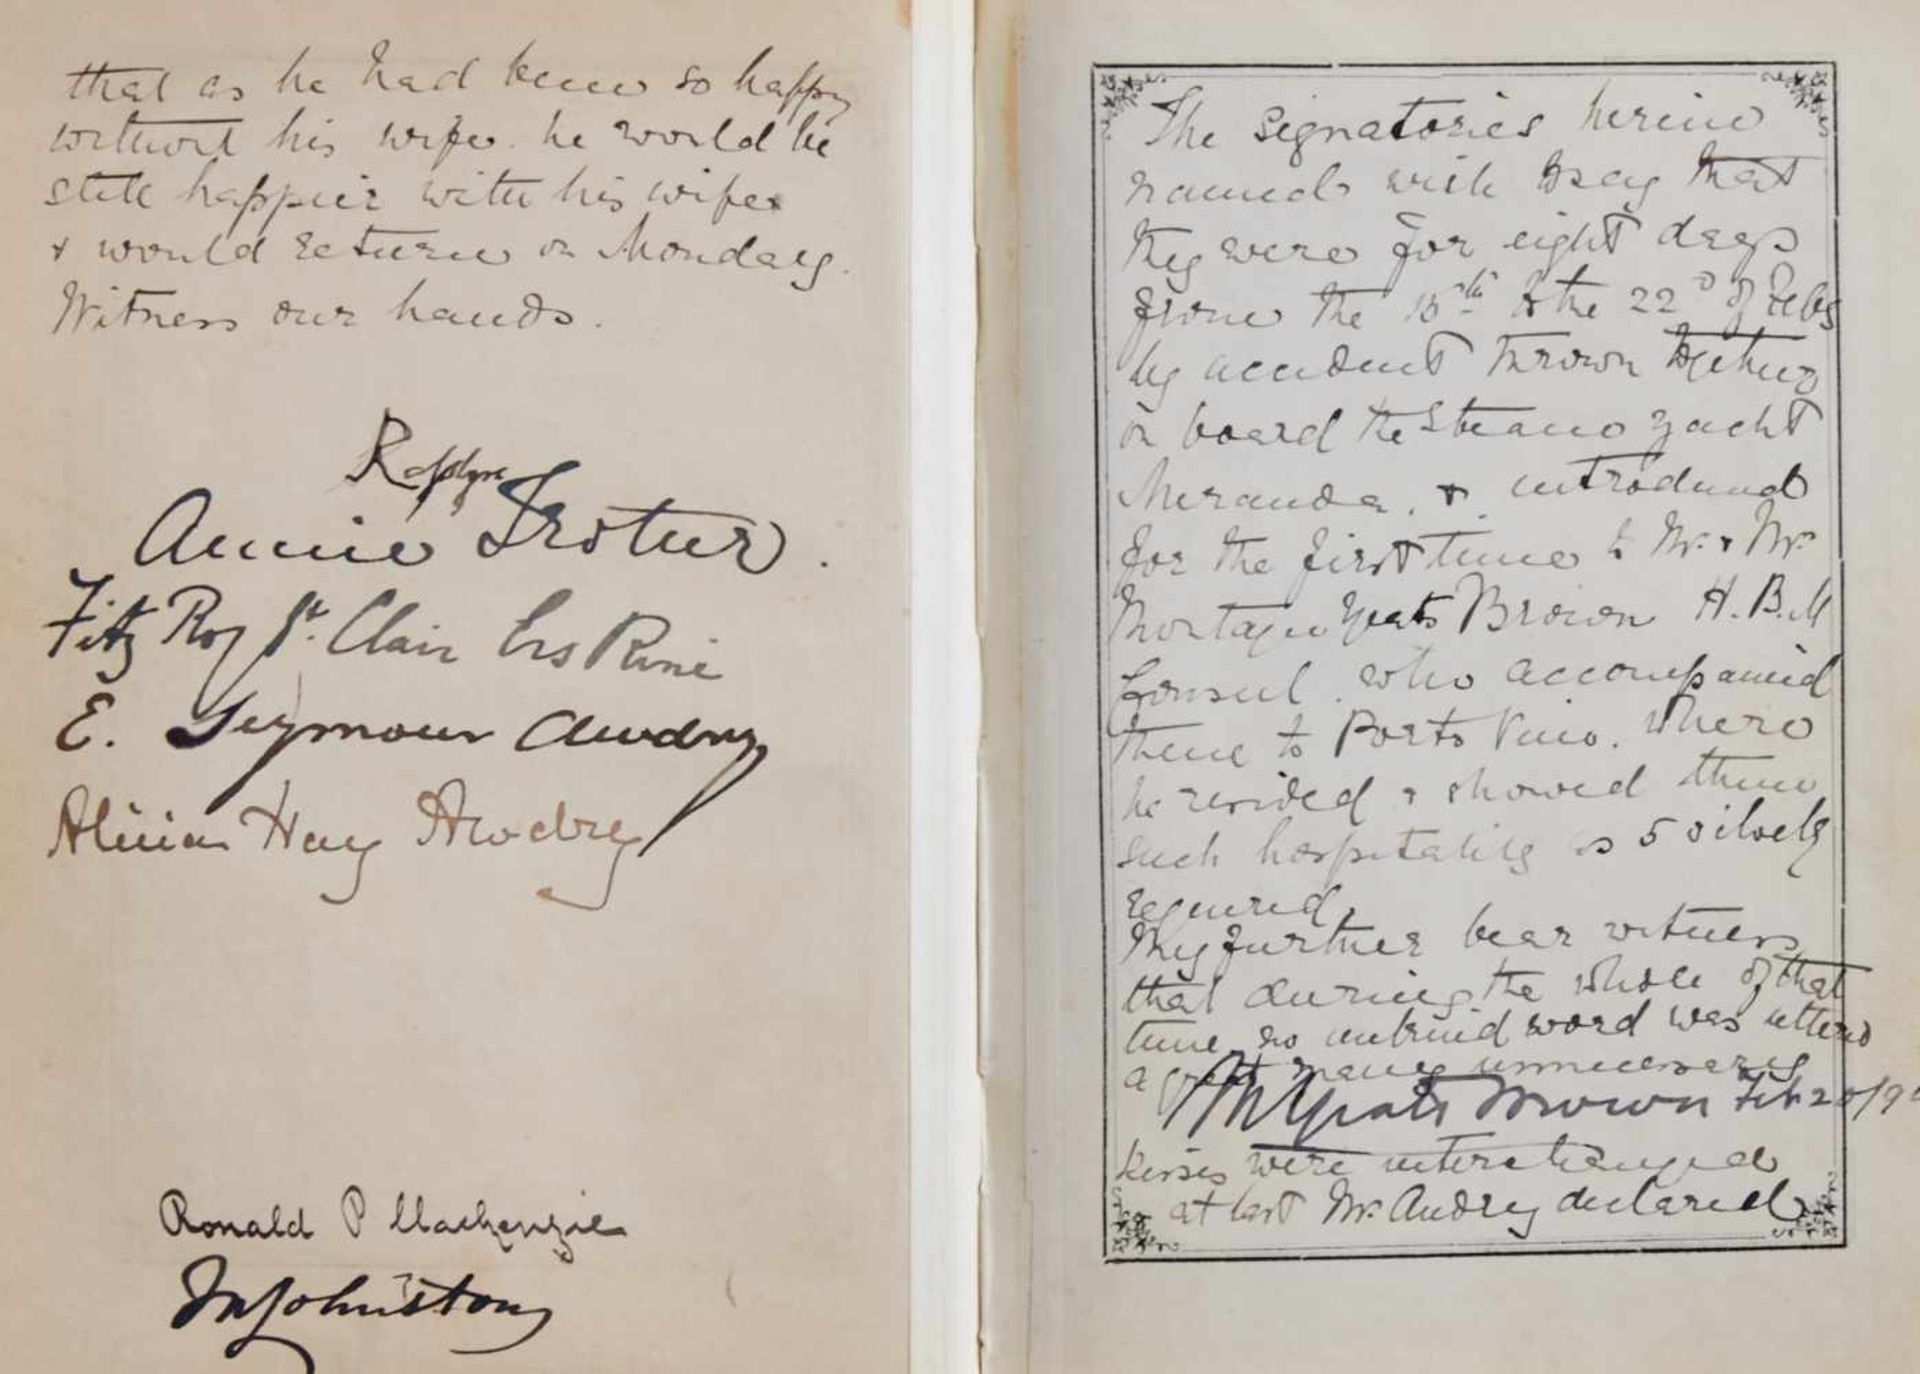 that as he had been so happy
without his wife. he would be
still happier with his wife
& would return on Monday.
Witness our hands.
Rosslyn
Annie Trotter.
Fitz Roy St. Clair Erskine
E. Seymour Awdry
Alicia Hay Awdry
Ronald P Mackenzie
Johnston
The signatories herein
named wish to say that
they were for eight days
from the 15th to the 22d of Feby
by accident thrown together
on board the Steam yacht
Miranda, & introduced
for the first time to Mr. & Mrs
Montagu Yeats Brown H.B.M
Consul. who accompanied
them to Porto Fino. where
he resided & showed them
such hospitality as
required.
They further bear witness
that during the whole of that
time no unkind word was uttered
a great many unnecessary
M Yeats Brown Feb 20/9
kisses were interchanged
at last Mr. Audry declared